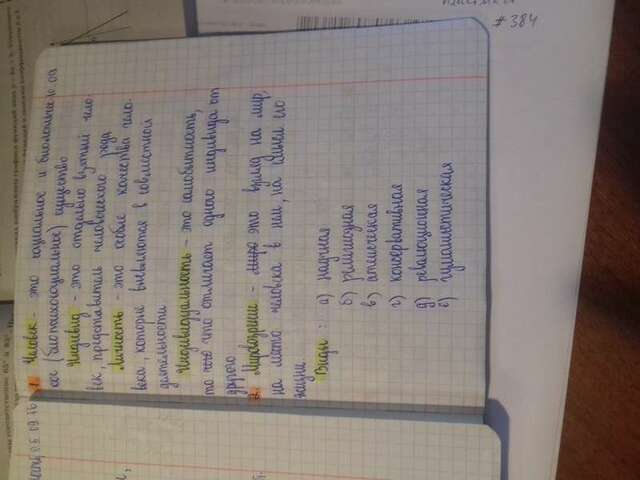 1. Человек - это социальное и биологичес
кое (биопсихосоциальное) существо
Индивид - это отдельно взятый чело-
век, представитель человеческого рода
Личность - это особые качества чело-
века, которые выявляются в совместной
деятельности
Индивидуальность - это самобытность,
то что отличает одного индивида от
другого
2. Мировоззрение - это взгляд на мир,
на место человека в нём, на смысл его
жизни
Виды:
а) научная
б) религиозная
в) атеическая
г) консервативная
д) революционная
е) гуманистическая
# 384